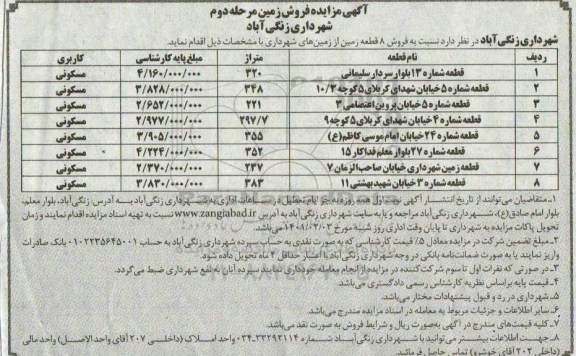 آگهی مزایده فروش زمین مرحله دوم
شهرداری زنگی‌آباد
شهرداری زنگی‌آباد در نظر دارد نسبت به فروش ۸ قطعه زمین از زمین‌های شهرداری با مشخصات ذیل اقدام نماید.
ردیف نام قطعه متراژ مبلغ پایه کارشناسی کاربری
۱ قطعه شماره ۱۳ بلوار سردار سلیمانی ۳۲۰ ۴/۱۶۰/۰۰۰/۰۰۰ مسکونی
۲ قطعه شماره ۵ خیابان شهدای کربلای ۵ کوچه ۱۰/۳ ۳۴۸ ۳/۸۲۸/۰۰۰/۰۰۰ مسکونی
۳ قطعه شماره ۵ خیابان پروین اعتصامی ۳ ۲۲۱ ۲/۶۵۲/۰۰۰/۰۰۰ مسکونی
۴ قطعه شماره ۴ خیابان شهدای کربلای ۵ کوچه ۹ ۲۹۷/۷ ۲/۹۷۷/۰۰۰/۰۰۰ مسکونی
۵ قطعه شماره ۲۴ خیابان امام موسی کاظم (ع) ۳۵۵ ۳/۹۰۵/۰۰۰/۰۰۰ مسکونی
۶ قطعه شماره ۲۷ بلوار معلم فداکار ۱۵ ۳۵۲ ۴/۲۲۴/۰۰۰/۰۰۰ مسکونی
۷ قطعه زمین شهرداری خیابان صاحب الزمان ۷ ۲۳۷ ۲/۳۷۰/۰۰۰/۰۰۰ مسکونی
۸ قطعه شماره ۳ خیابان شهید بهشتی ۱۱ ۳۸۳ ۳/۸۳۰/۰۰۰/۰۰۰ مسکونی
۱ـ متقاضیان می‌توانند از تاریخ انتشار آگهی نوبت اول همه روزه به جز ایام تعطیل در ساعات اداری به شهرداری زنگی‌آباد به آدرس زنگی‌آباد، بلوار معلم،
بلوار امام صادق(ع)، شهرداری زنگی‌آباد مراجعه و یا به سایت شهرداری زنگی آباد به آدرس www.zangiabad.ir نسبت به تهیه اسناد مزایده اقدام نمایند و زمان
تحویل پاکات مزایده به شهرداری تا پایان وقت اداری روز شنبه مورخ ۱۴۰۹/۰۳/۰۳ می‌باشد.
۲ـ مبلغ تضمین شرکت در مزایده معادل ۵٪ قیمت کارشناسی که به صورت نقدی به حساب سپرده شهرداری زنگی آباد به حساب ۰۱۰۲۲۳۵۶۴۵۰۰۱ بانک صادرات
واریز نمایند یا به صورت ضمانت‌نامه بانکی در وجه شهرداری زنگی آباد با اعتبار حداقل ۴ ماه تحویل داده شود.
۳ـ در صورتی که نفرات اول تا سوم شرکت‌کننده در مزایده از انجام معامله خودداری نمایند سپرده آنان به نفع شهرداری ضبط می‌گردد.
۴ـ قیمت پایه براساس نظریه کارشناس رسمی دادگستری می‌باشد.
۵ـ شهرداری در رد و قبول پیشنهادات مختار می‌باشد.
۶ـ سایر اطلاعات و جزئیات مربوط به معامله در اسناد مزایده مندرج می‌باشد.
۷ـ کلیه قیمت‌های مندرج در آگهی به‌صورت ریال و شرایط فروش به صورت نقد می‌باشد.
۸ـ جهت اطلاعات بیشتر می‌توانید با شهرداری زنگی آباد شماره ۰۳۴-۳۳۲۹۲۱۱۴ واحد املاک (داخلی ۲۰۷ آقای واحد الاصل) واحد مالی
(داخلی ۲۰۲ آقای خوبرو) تماس حاصل فرمائید.